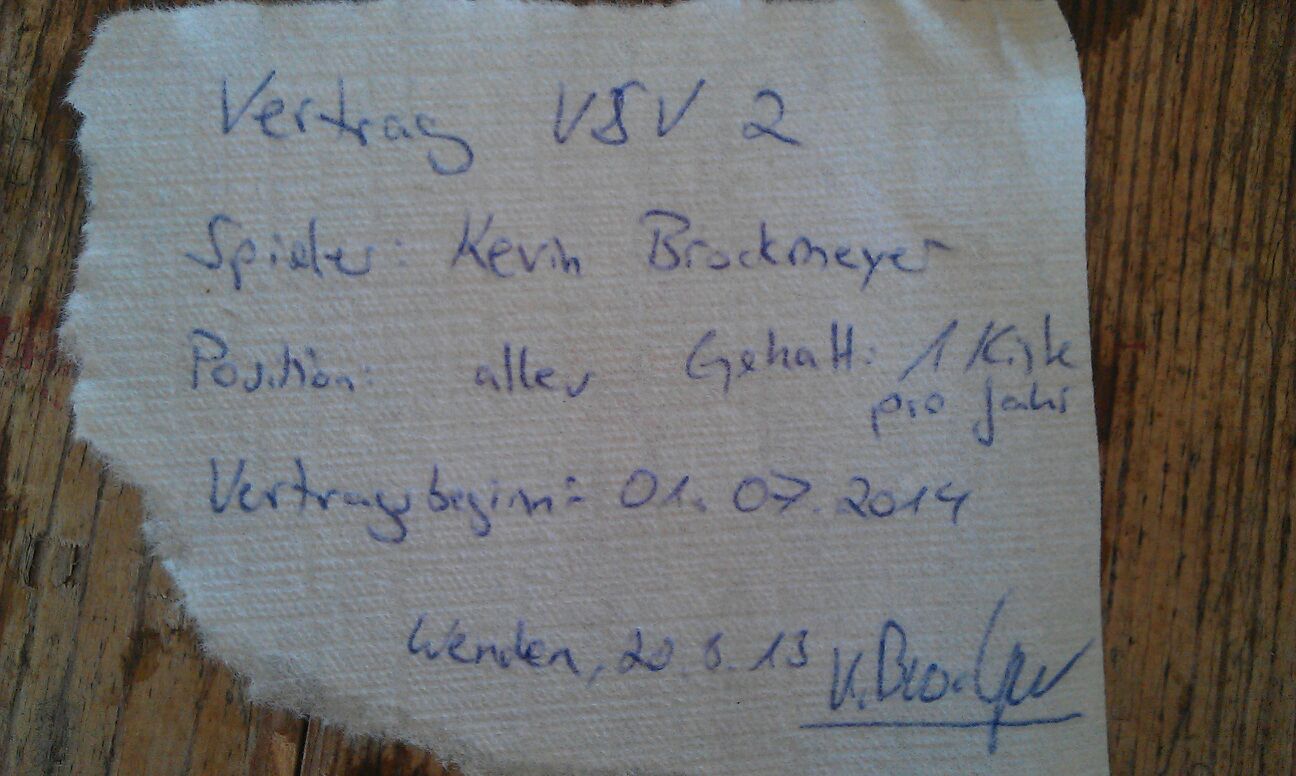 Vertrag VSV 2
Spieler: Kevin Brockmeyer
Position: alles Gehalt: 1 Kiste
pro Jahr
Vertragsbeginn: 01.07.2014
Wenden, 20.6.13